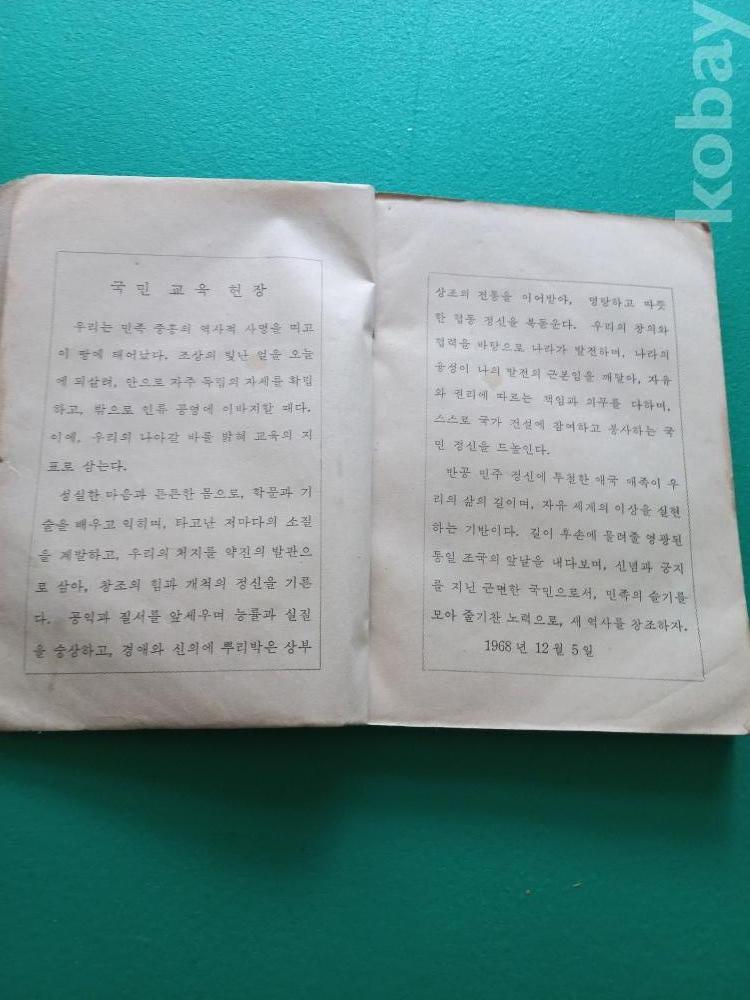 국민 교육 헌장
우리는 민족 중흥의 역사적 사명을 띠고
이 땅에 태어났다. 조상의 빛난 얼을 오늘
에 되살려, 안으로 자주 독립의 자세를 확립
하고, 밖으로 인류 공영에 이바지할 때다.
이에, 우리의 나아갈 바를 밝혀 교육의 지
표로 삼는다.
성실한 마음과 튼튼한 몸으로, 학문과 기
술을 배우고 익히며, 타고난 저마다의 소질
을 계발하고, 우리의 처지를 약진의 발판으
로 삼아, 창조의 힘과 개척의 정신을 기른
다. 공익과 질서를 앞세우며 능률과 실질
을 숭상하고, 경애와 신의에 뿌리박은 상부
상조의 전통을 이어받아, 명랑하고 따뜻
한 협동 정신을 북돋운다. 우리의 창의와
협력을 바탕으로 나라가 발전하며, 나라의
융성이 나의 발전의 근본임을 깨달아, 자유
와 권리에 따르는 책임과 의무를 다하며,
스스로 국가 건설에 참여하고 봉사하는 국
민 정신을 드높인다.
반공 민주 정신에 투철한 애국 애족이 우
리의 삶의 길이며, 자유 세계의 이상을 실현
하는 기반이다. 길이 후손에 물려줄 영광된
통일 조국의 앞날을 내다보며, 신념과 긍지
를 지닌 근면한 국민으로서, 민족의 슬기를
모아 줄기찬 노력으로, 새 역사를 창조하자.
1968년 12월 5일
kobay